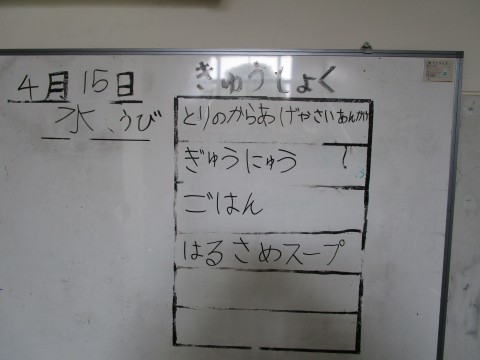 4月15日
水ようび
きゅうしょく
とりのからあげやさいあんかけ
ぎゅうにゅう !
ごはん
はるさめスープ